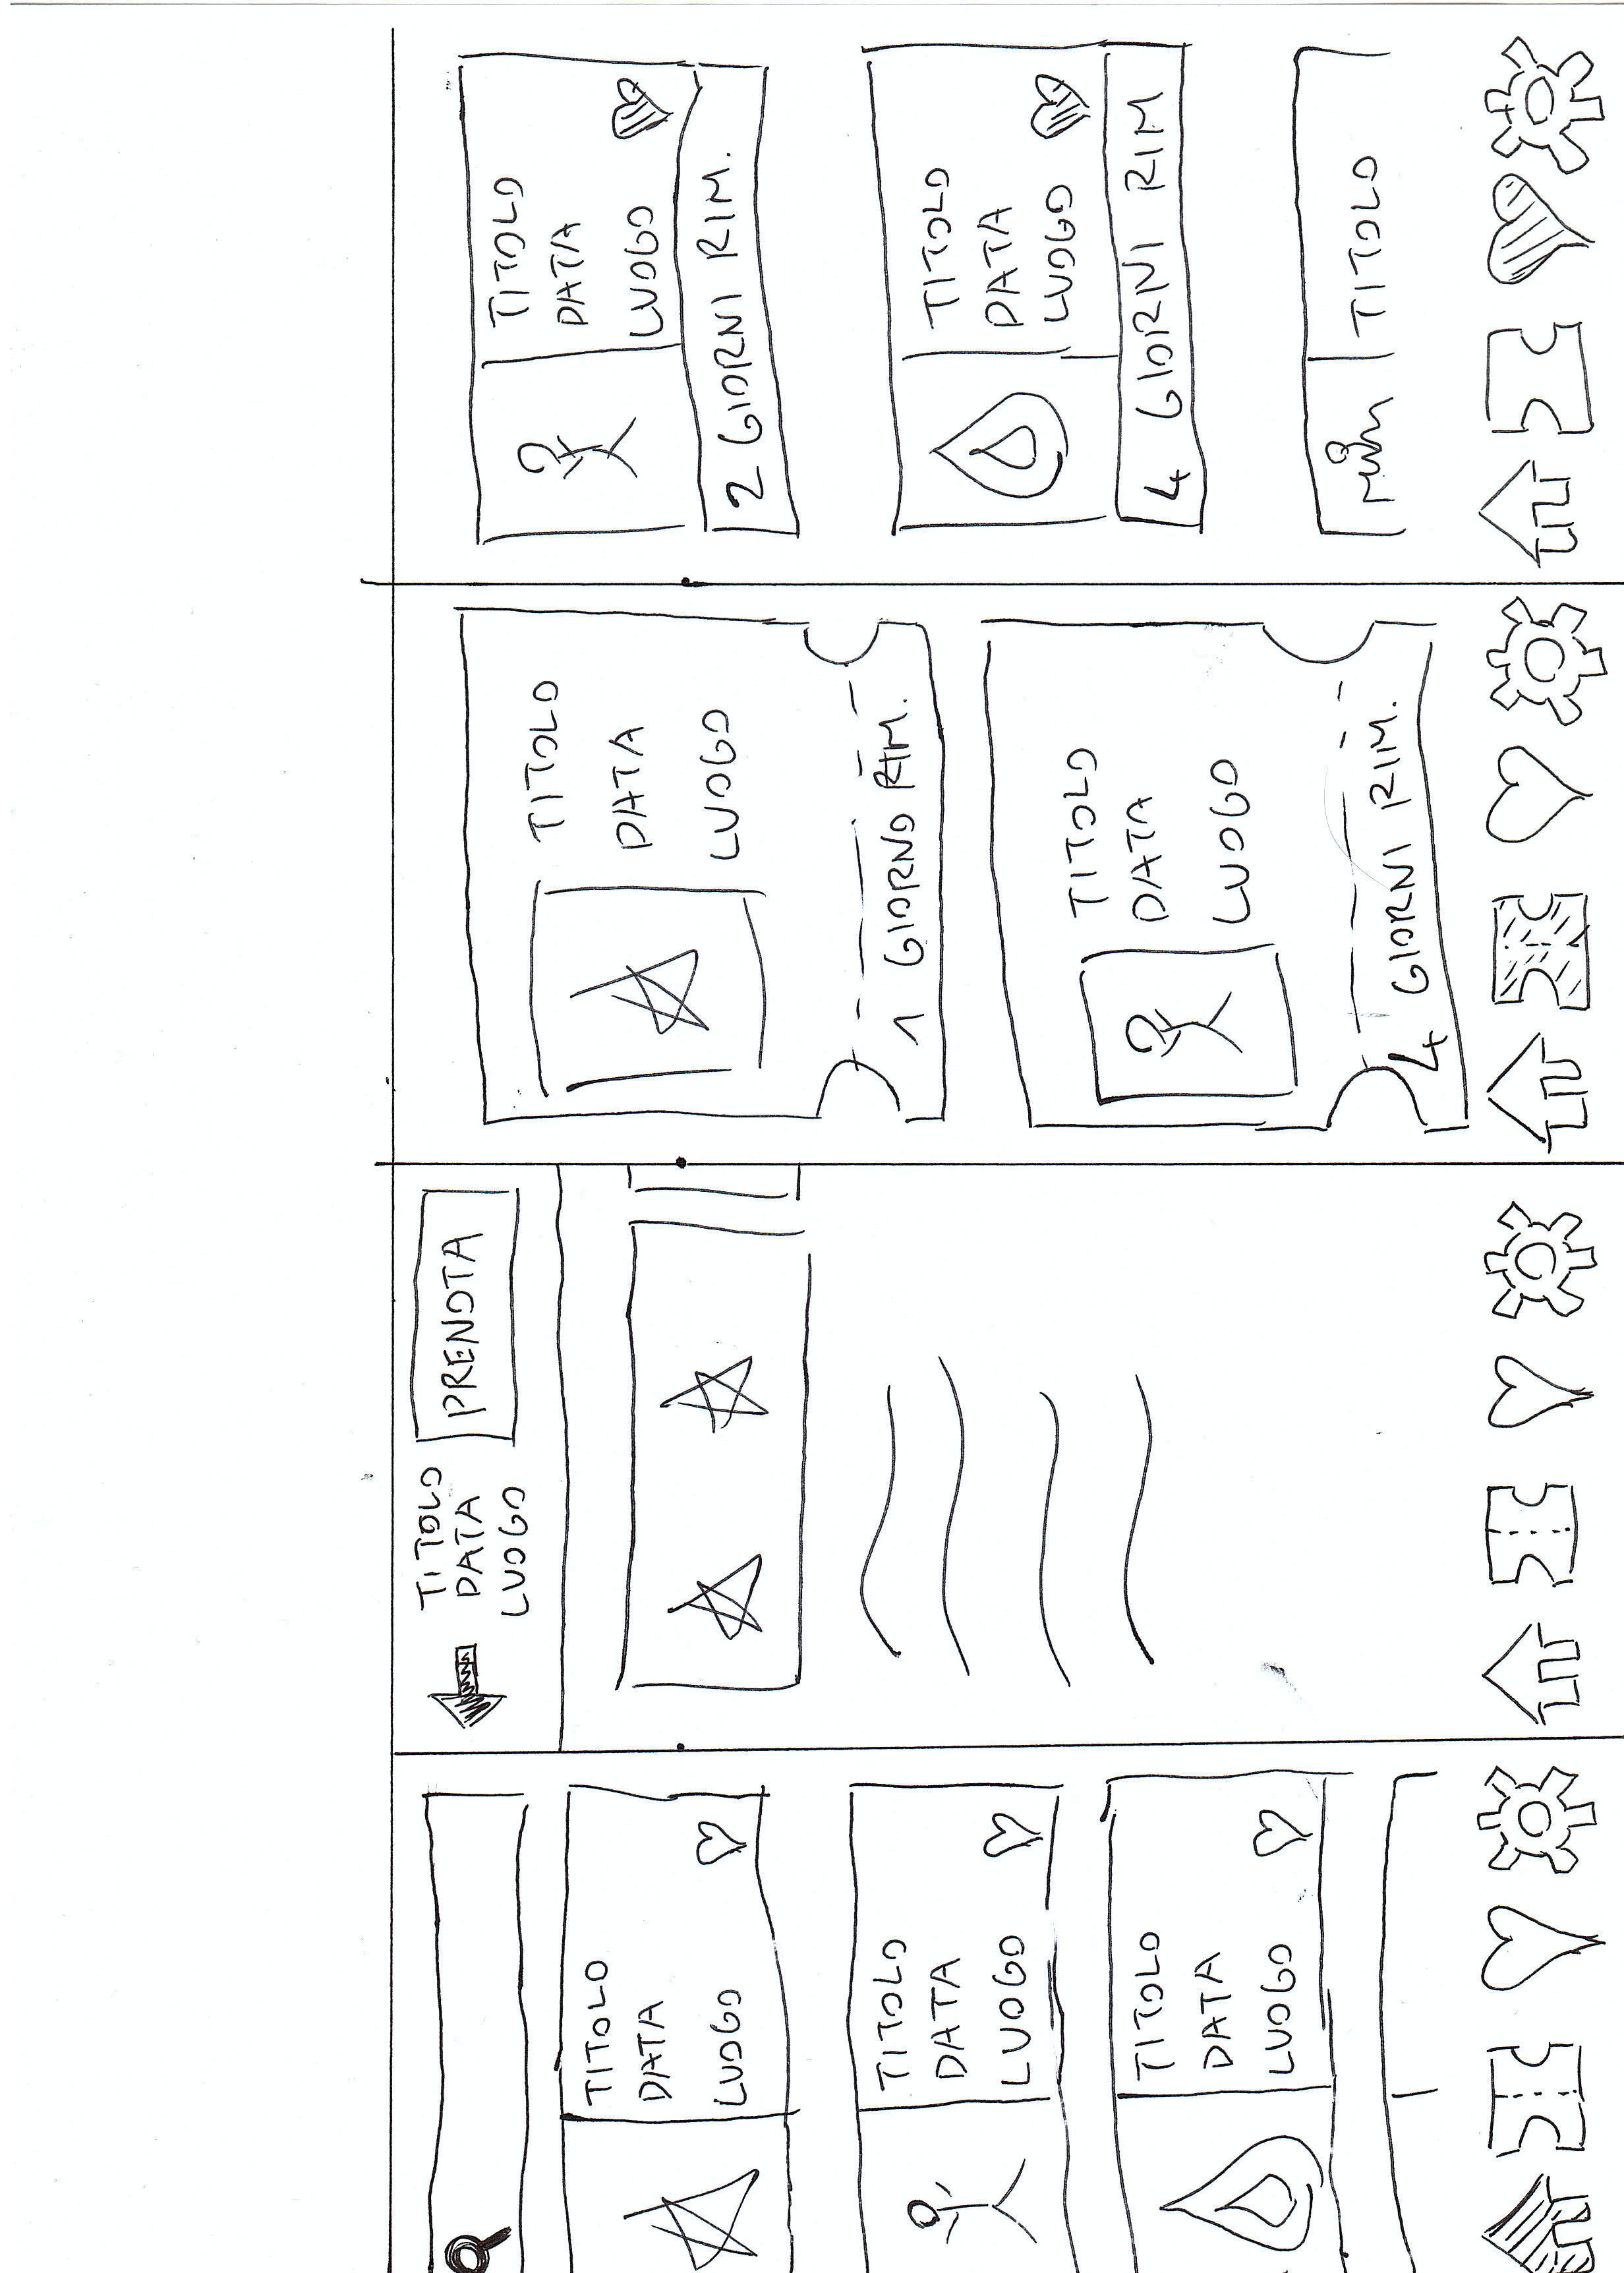 TITOLO
DATA
LUOGO
TITOLO
DATA
LUOGO
TITOLO
DATA
LUOGO
TITOLO
DATA
LUOGO
PRENOTA
TITOLO
DATA
LUOGO
1 GIORNO RIM.
TITOLO
DATA
LUOGO
4 GIORNI RIM.
TITOLO
DATA
LUOGO
2 GIORNI RIM.
TITOLO
DATA
LUOGO
4 GIORNI RIM
TITOLO